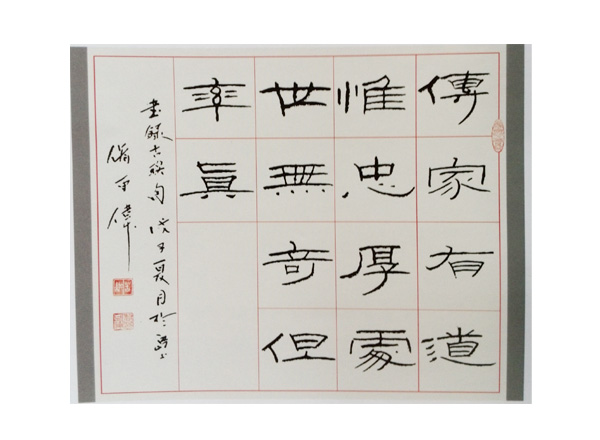 傳家有道
惟忠厚處
世無奇但
率眞
書錄古联句戊子夏月於
偉